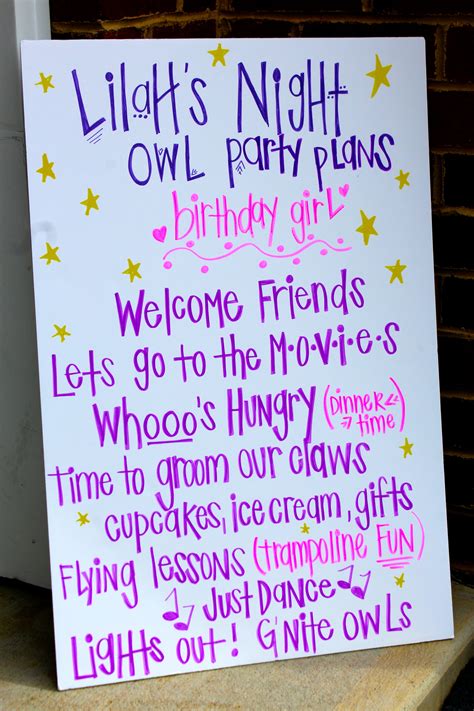 Lilah's Night
Owl party plans
birthday girl
Welcome Friends
Lets go to the M·o·v·i·e·s
Whooo's Hungry (Dinner time)
time to groom our claws
cupcakes, ice cream, gifts
Flying lessons (trampoline FUN)
Just Dance
Lights out! G'nite owls